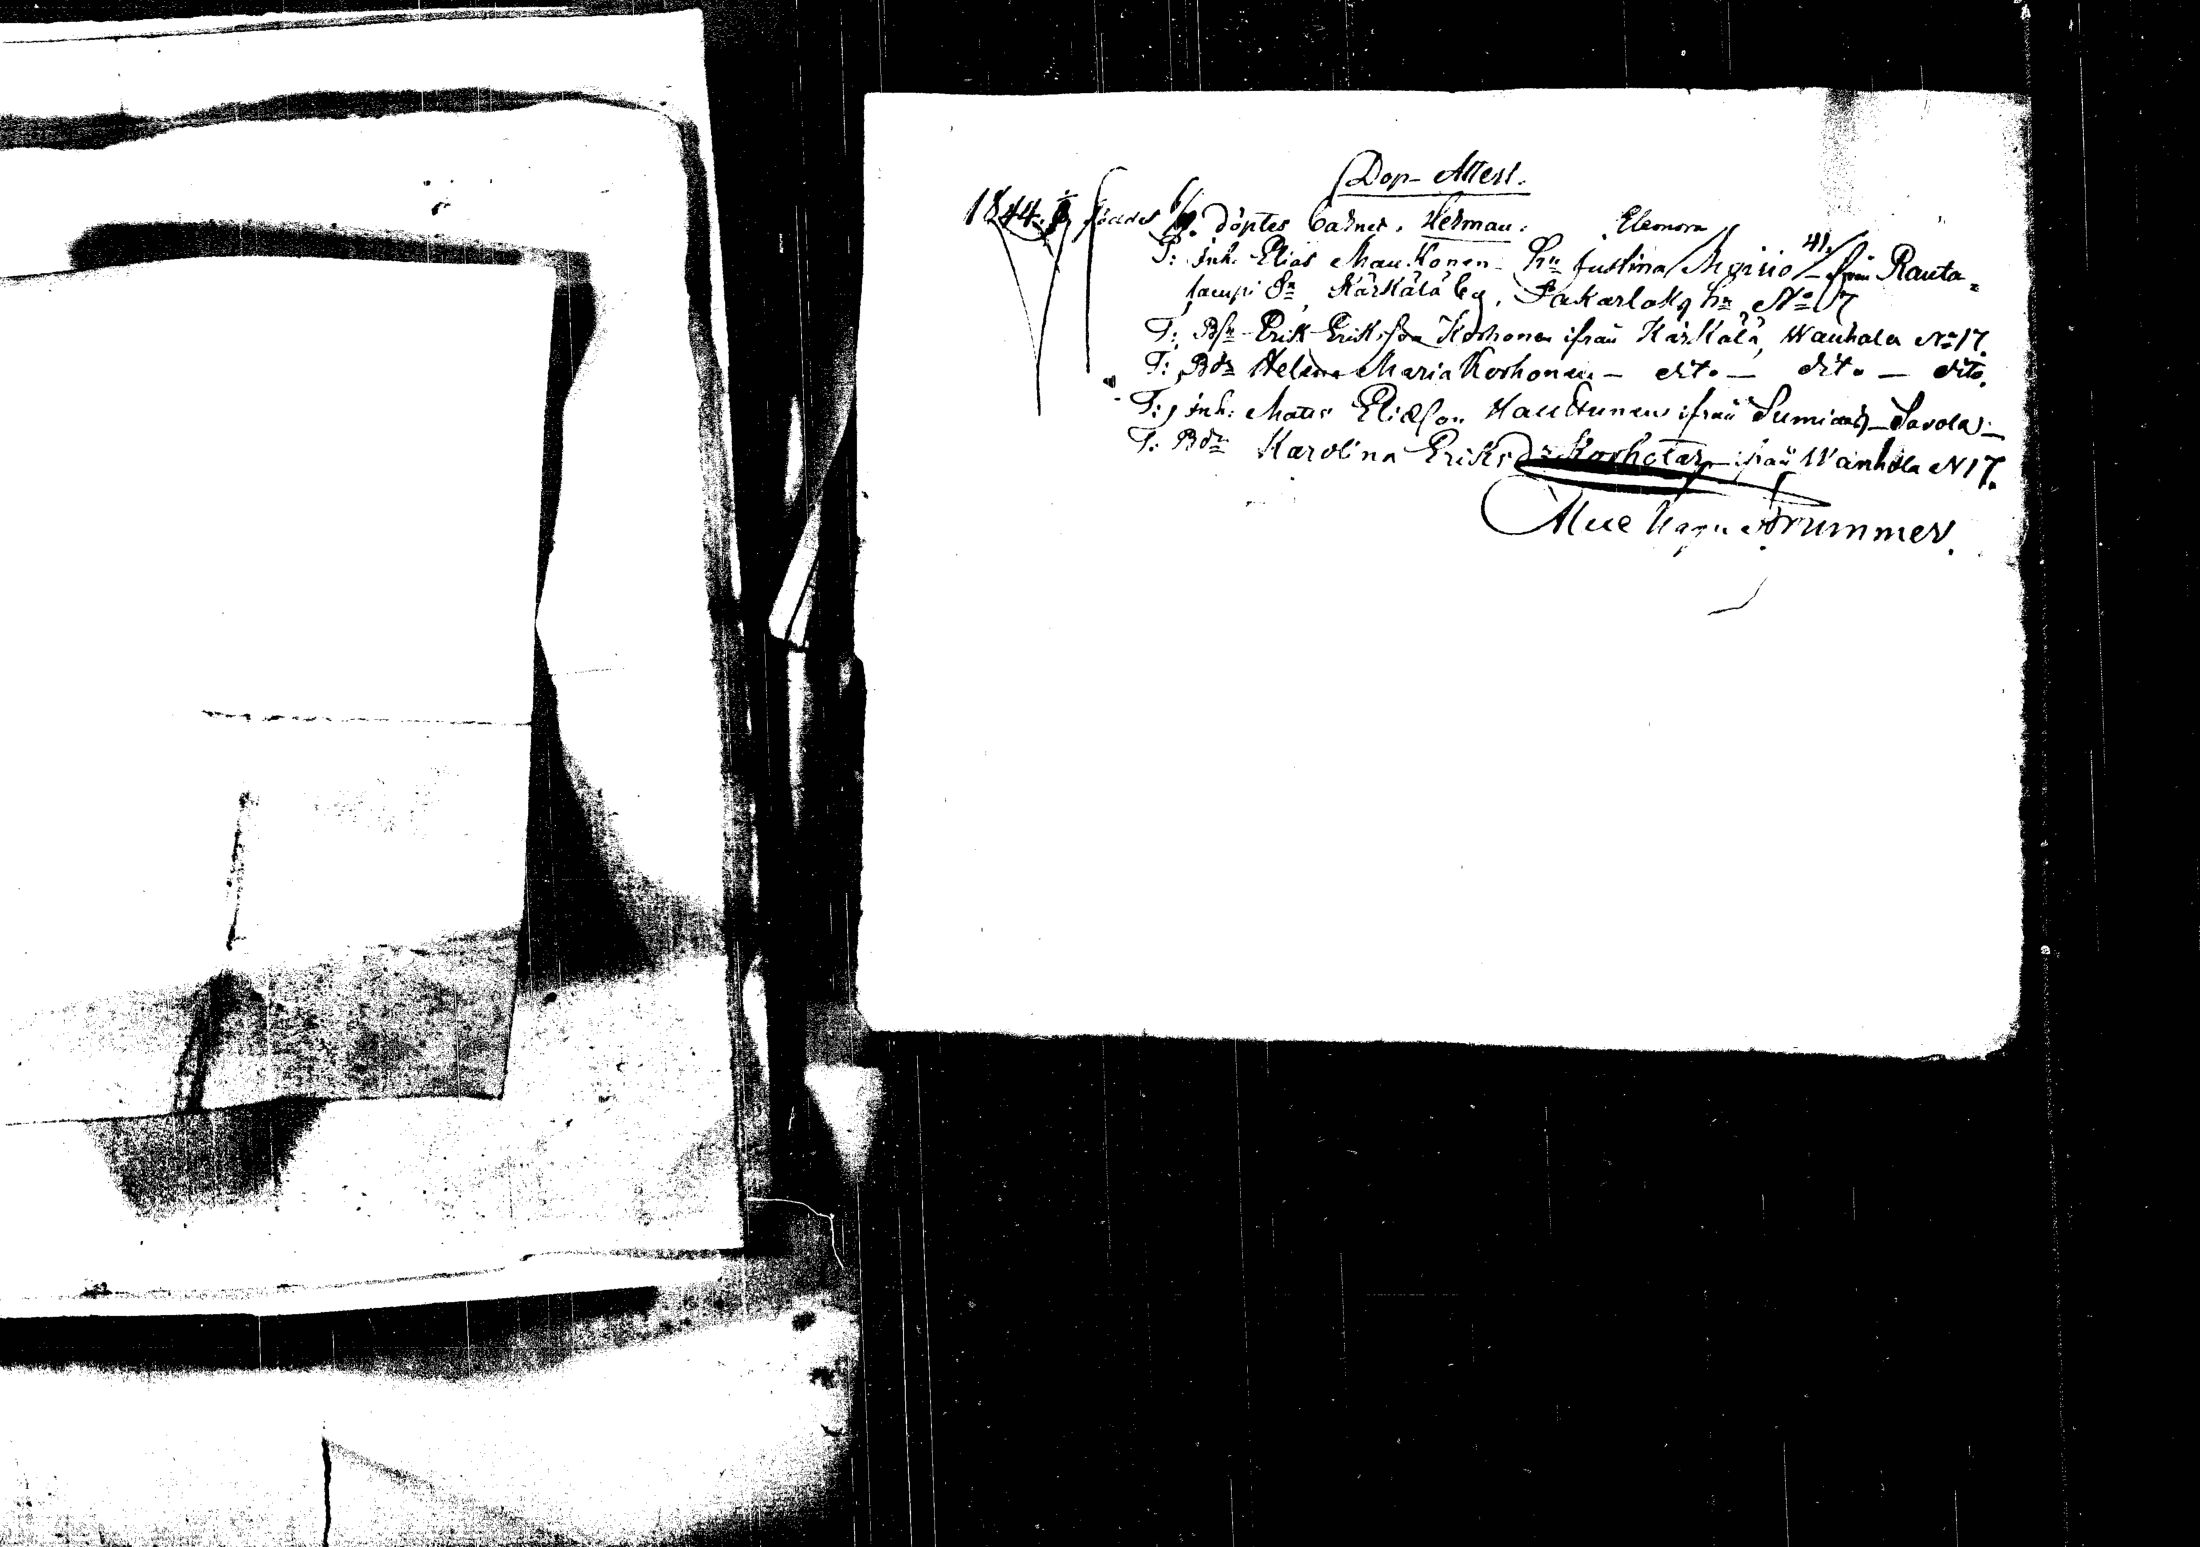 Dop-Attest.
1844. föddes 6/9. döptes barnet. Herman.
Eleonora
P: Inh. Elias Maukonen hu Justina 41. från Rauta-
lampi Sn, Kärkälä by, Pakarlaks hn, No 17
T: Bsn Erik Eriksson Korhonen ifrån Kärkälä, Wanhala No 17.
T: Bdr Helena Maria Korhonen — dito — dito — dito.
T: Inh: Matts Eliæson ifrån Sumiais — Savola —
T: Bdr Karolina Eriksdr Korhotar — ifrån Wanhala N 17.
Brummer.